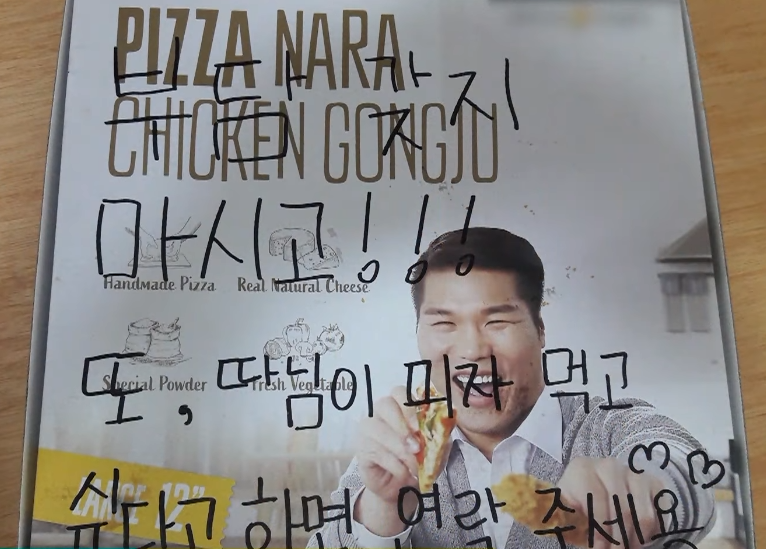 PIZZA NARA
부담 갖지
CHICKEN GONGJU
마시고!!!
Handmade Pizza Real Natural Cheese
또, 따님이 피자 먹고
Special Powder Fresh Vegetable
싶다고 하면 연락 주세요
LARGE 12"